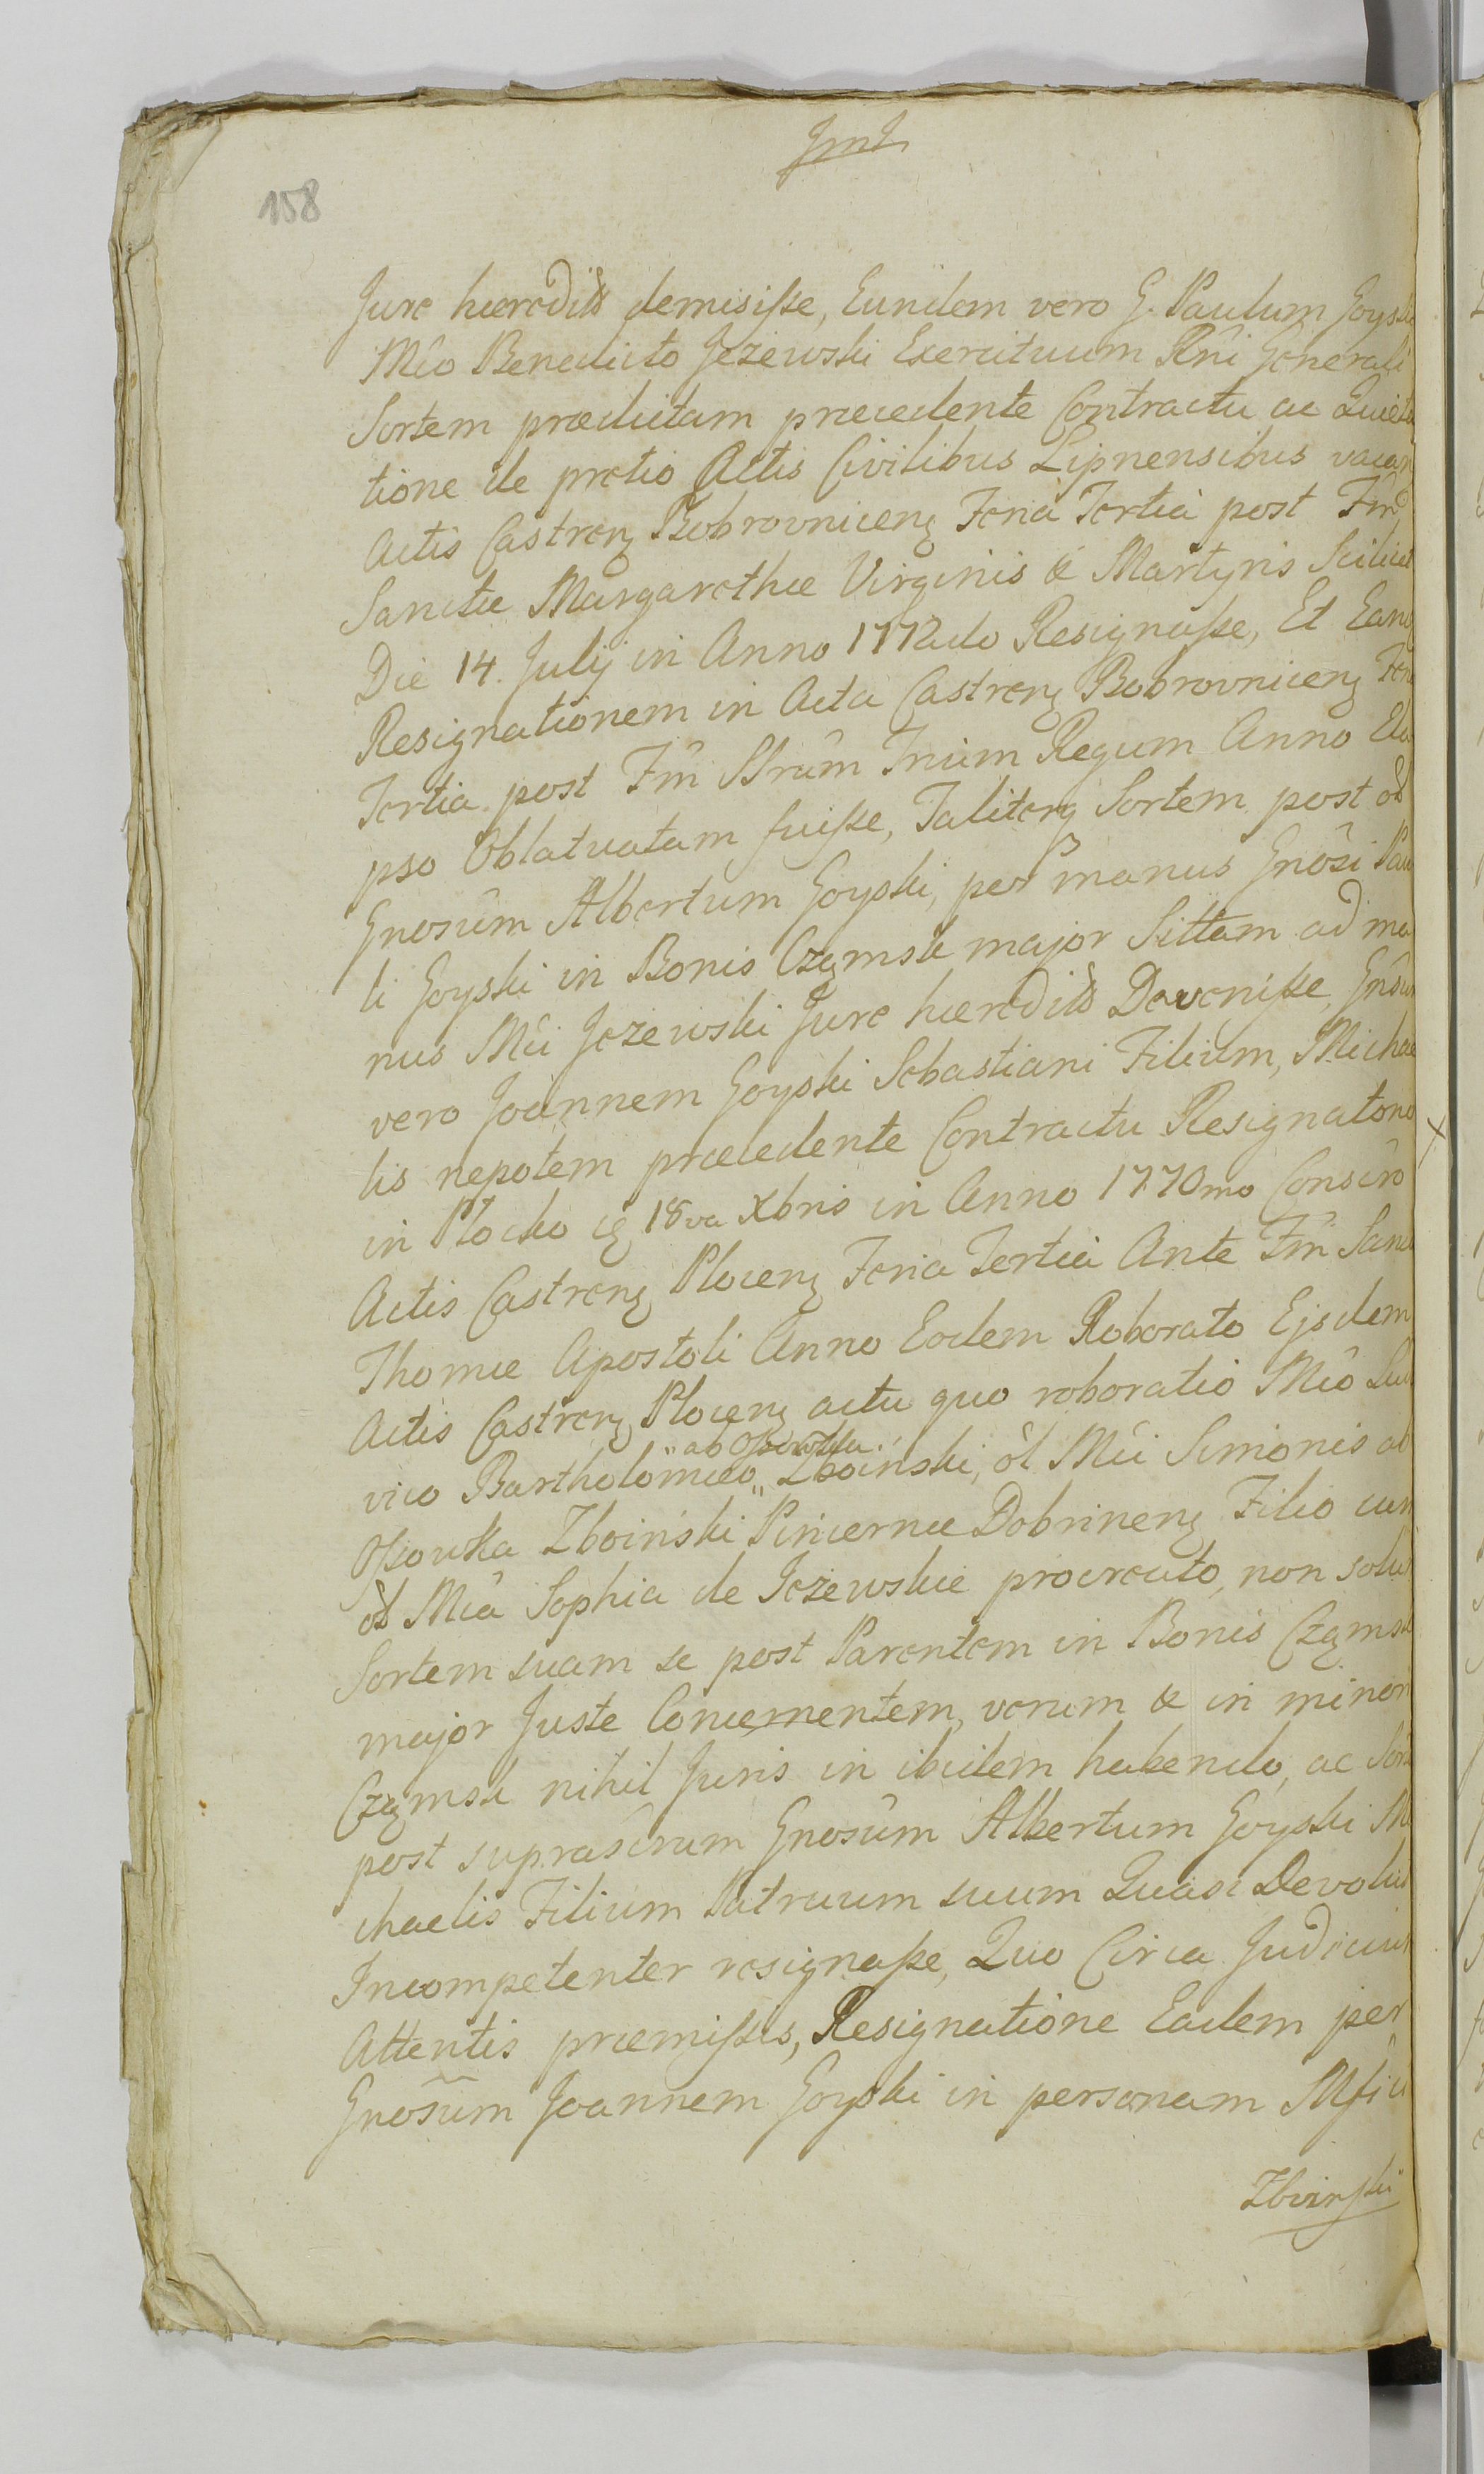 JmJ
158
Jure hæredits demisiſse, Eundem vero G. Paulum Goyski
Mco Benedicto Jeżewski Exercituum Rni Generali
Sortem prædictam præcedente Contractu ac Quieta
tione de pretio Actis Civilibus Lipnensibus
Actis Castren Bobrovnicen Feria Tertia post Fm
Sanctæ Margarethæ Virginis & Martyris Scilicet
Die 14. Julij in Anno 1772do Resignaſse, Et Eand
Resignationem in Acta Castren Bobrovnicen Fer
Tertia post Fm SSrum Trium Regum Anno Ela
pso Oblatuatam fuiſse, Taliterq Sortem post ol
Gnosum Albertum Goyski, per manus Gnosi Pau
li Goyski in Bonis Czymsk major Sittam ad ma
nus Mci Jeżewski Jure hæredits Deveniſse, Gnosum
vero Joannem Goyski Sebastiani Filium, Michae
lis nepotem præcedente Contractu Resignatorio
in Płocko 18va Xbris in Anno 1770mo Conscro
Actis Castren Plocen Feria Tertia Ante Fm Sanct
Thomæ Apostoli Anno Eodem Roborato Ejsdem
Actis Castren Plocen actu quo roboratio Mco Lud
vico Bartholomæo „ ab Oſsowka „ Zboiński, ol Mci Simonis ab
Oſsowka Zboiński Pincernæ Dobrinen Filio cum
ol Mca Sophia de Jeżewskie procreato, non solum
Sortem suam se post Parentem in Bonis Czymsk
major Juste Concernentem, verum & in minori
Czymsk nihil Juris in ibidem habendo, ac Sort
post suprascrum Gnosum Albertum Goyski Mi
chaelis Filium Patruum suum Quasi Devolut
Incompetenter resignaſse, Quo Circa Judicium
Attentis præmiſsis, Resignatione Eadem per
Gnosum Joannem Goyski in personam Mfici
Zboinſki